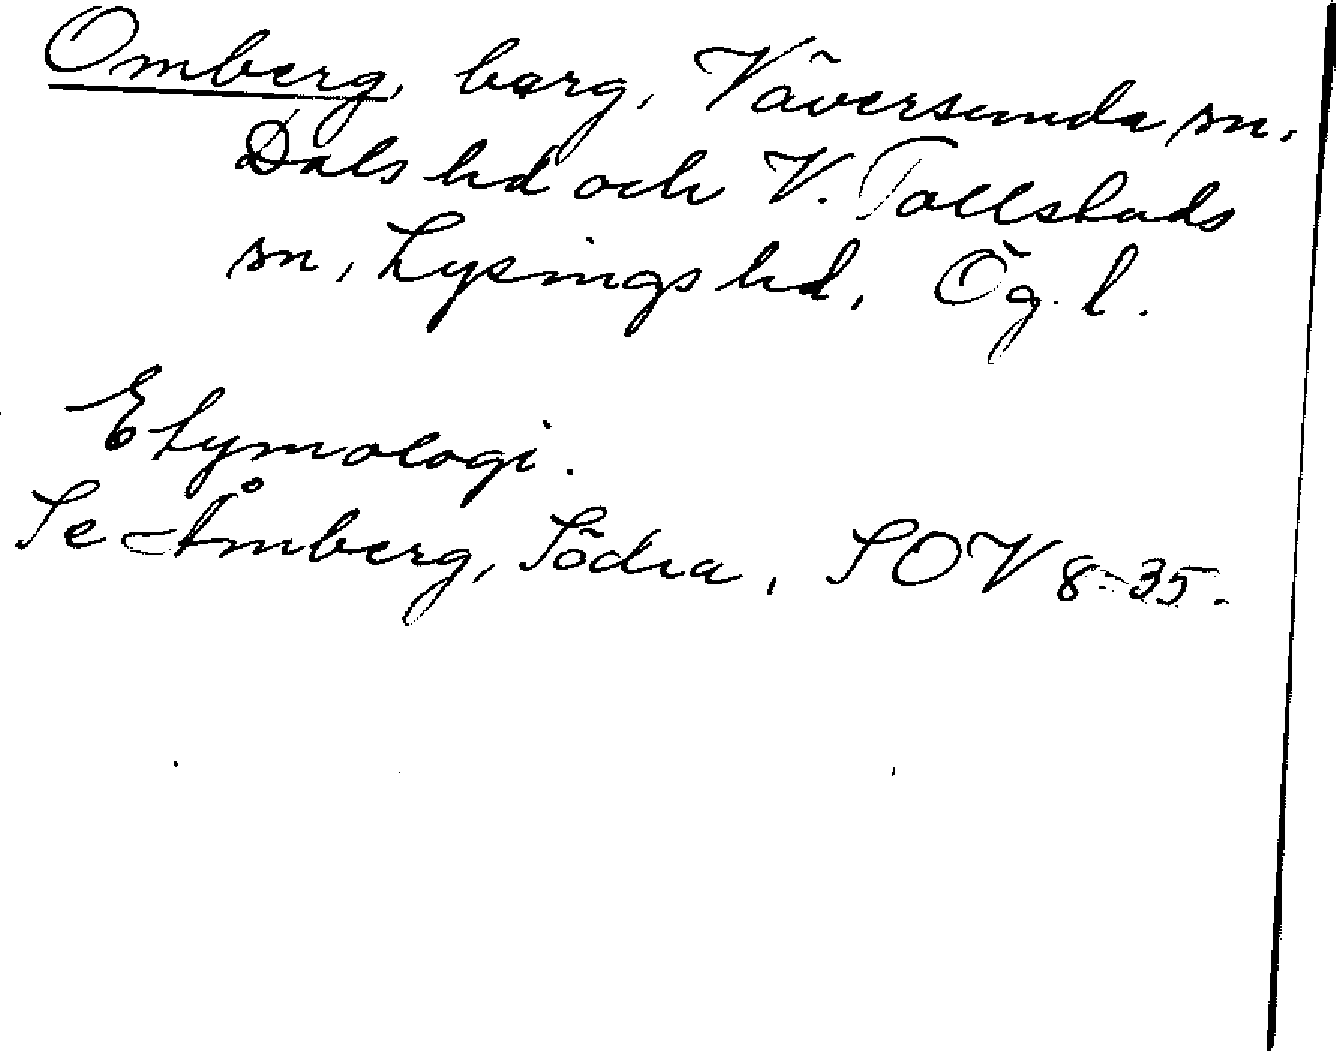 Omberg, berg, Väversunda sn,
Dals hd och V. Tollstads
sn, Lysings hd, Ög. l.
Etymologi.
Se Åmberg, Södra, SOV 8-35.